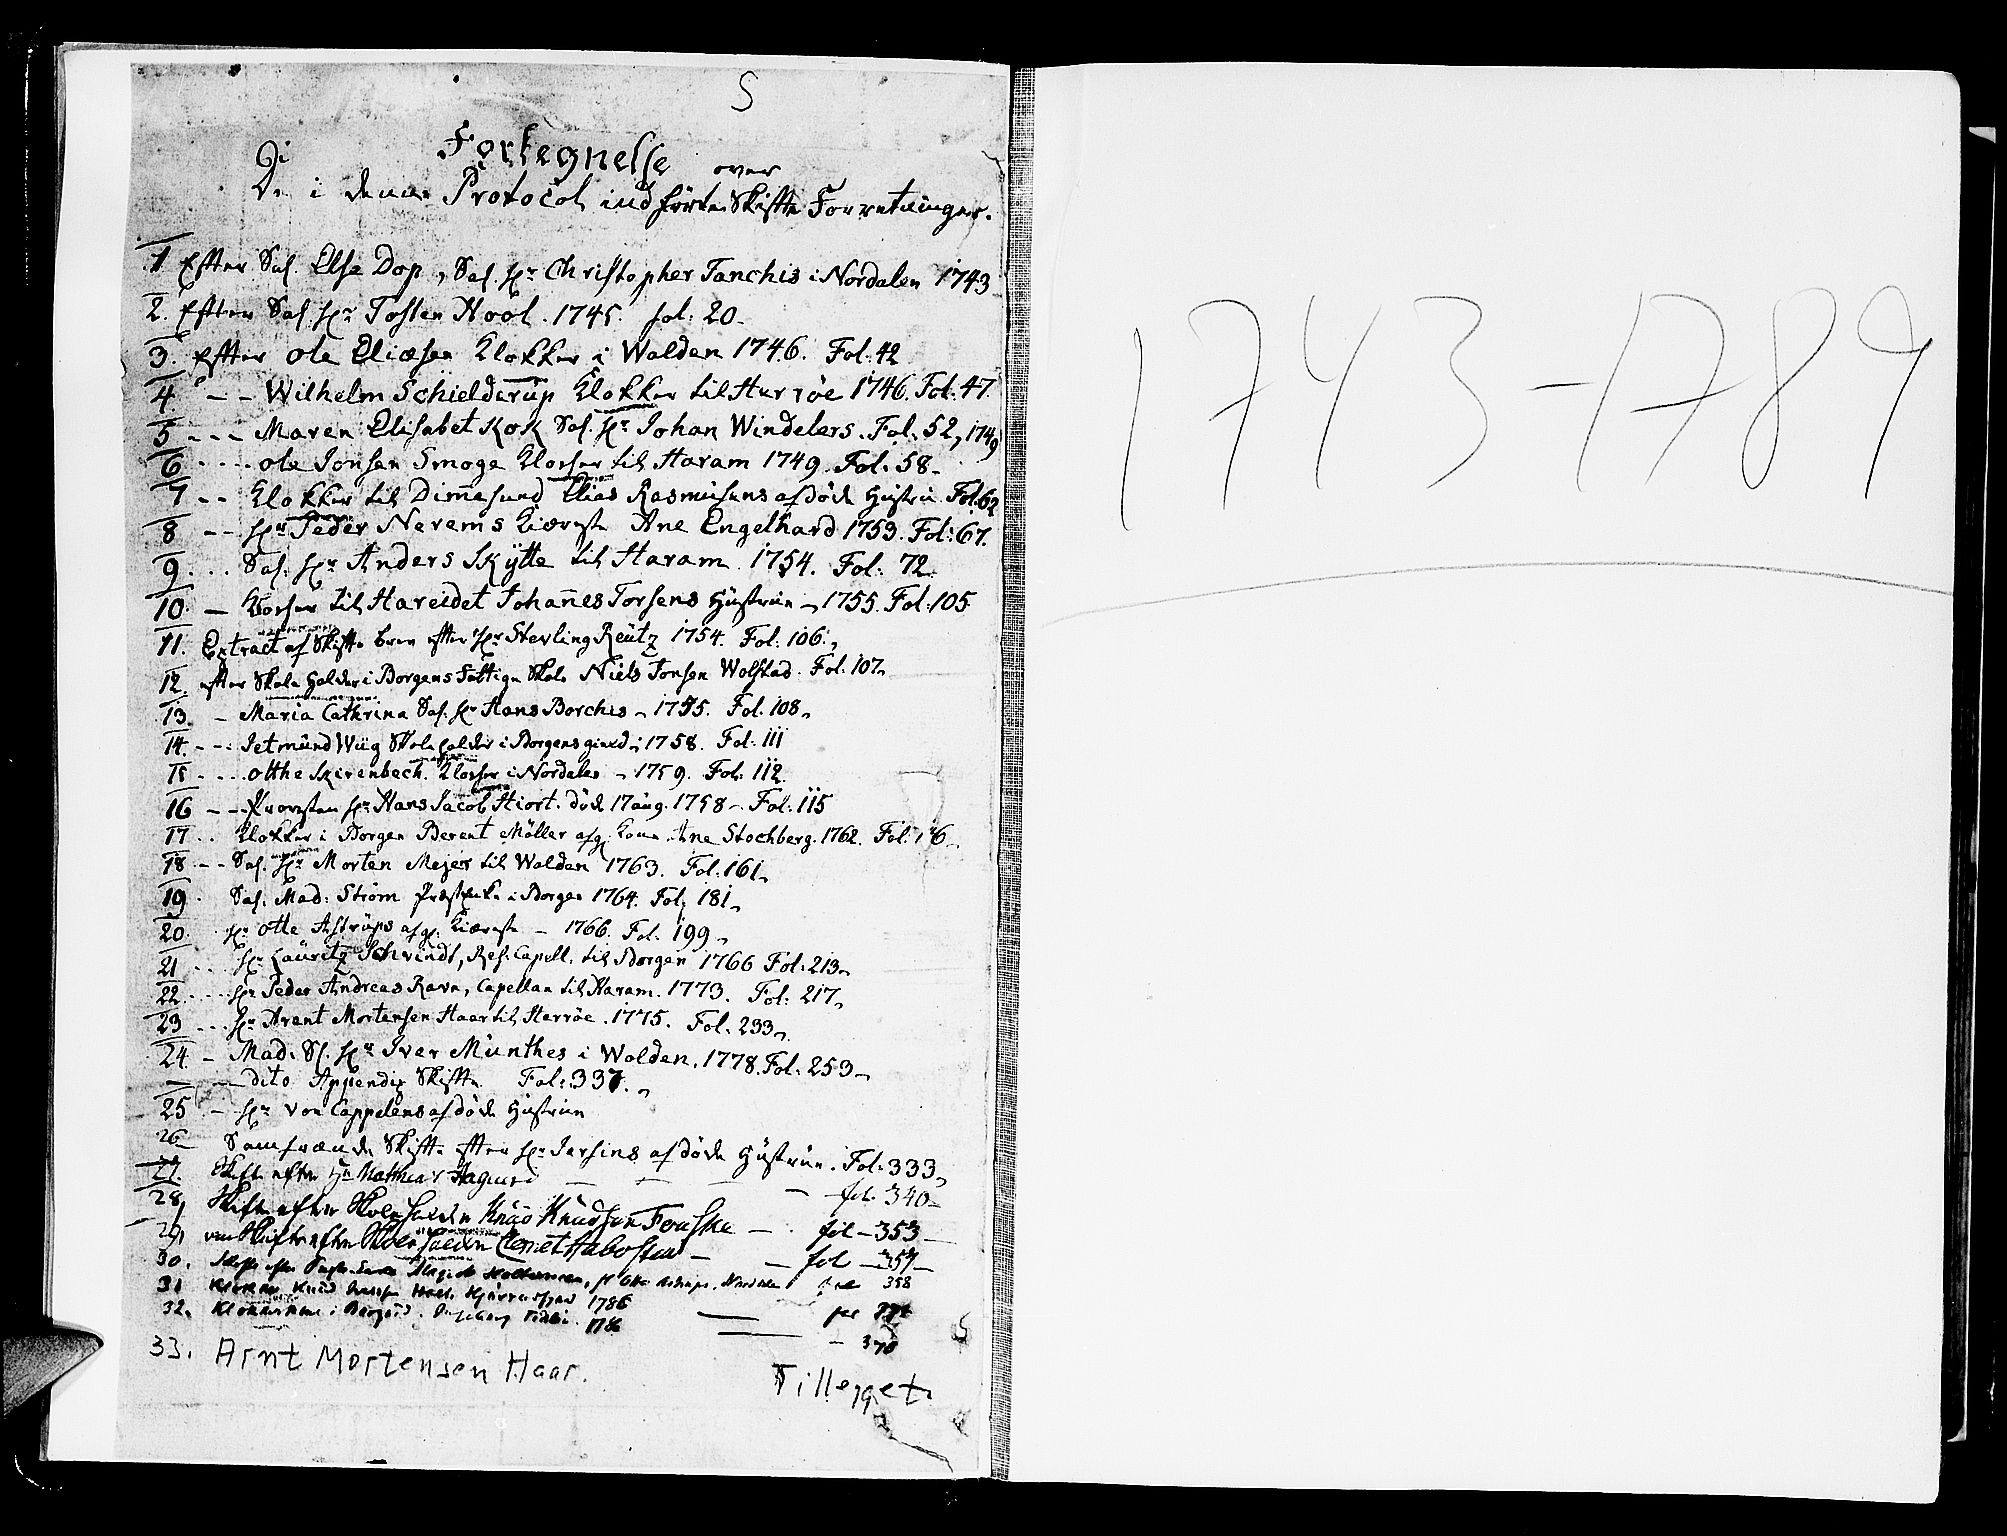 S
Fortegnelse
over
De i denne Protocol indførte Skifte Forretninger.
1 Efter Sal. Else Dop, Sal. Hr Christopher Tanchis i Nordalen 1743
2. Efter Sal. Hr Tosten Hool. 1745. fol: 20
3. Efter ole Eliæsen Klokker i Wolden 1746. Fol: 42
4 - - Wilhelm Schielderup Klokker til Herröe 1746. Fol: 47.
5 - - - Maren Elisabet Kok Sal. Hr Johan Windelers. Fol. 52, 1749
6 . . . . ole Jonsen Smoge Klocker til Haram 1749. Fol: 58
7 - - Klokker til Dimesund Elias Rasmusens afdöde Hustrue Fol: 62
8 - - Hr Peder Nerems Kiæreste Ane Engelhard 1753. Fol: 67.
9 . . . Sal. Hr Anders Skÿtte til Haram 1754. Fol: 72.
10 - Klocker til Hareidet Johañes Torsens Hustrue 1755. Fol: 105
11. Extract af Skifte brev efter Hr Sterling Reutz 1754. Fol: 106.
12. efter Skole Holder i Borgens Fattige Skole Niels Jonsen Wolstad. Fol: 107
13. - Maria Cathrina Sal. Hr Hans Borchis - 1755. Fol. 108
14. - - Jetmund Wiig Skoleholder i Borgens gield 1758. Fol: 111
15 . . . . otthe Leirenbech. Klocker i Nordalen - 1759. Fol: 112
16 - - Provsten Hr Hans Jacob Hiort. död 17 aug. 1758 - Fol: 115
17 . . Klokker i Borgen Berent Möller afg. Kone Ane Stochberg. 1762. Fol:
18 - - Sal. Hr Morten Mejer til Wolden 1763. Fol: 161
19. Sal. Mad: Strøm Præsteenke i Borgen 1764. Fol. 181
20. Hr Otte Astrups afg. Kiæreste - 1766. Fol. 199
21 . . . Hr Lauritz Schvindt, Res. Capell. til Borgen 1766 Fol: 213
22. . . . Hr Peder Andreas Ravn, Capellan til Haram. 1773. Fol: 217
23 . . . Hr Arent Mortensen Haar til Herröe. 1775. Fol. 233
24. - Mad. Sl. Hr Iver Munthes i Wolden. 1778. Fol: 253
- - dito Appendix Skifte Fol: 337.
25 - Hr von Cappelens afdöde Hustrue
26 Samfrænde Skifte efter Hr Jersins afdöde Hustrue. Fol: 333
27. Skifte efter Hr Mathias Hagerud - - - fol. 340
28, Skifte efter Skoleholder Knud Knudsen Fouske - fol - 353
29, Skifte efter Skoleholder Clemet Aaboskou - fol - 357
30. 358
31 Klokker Knud 1786
32. Klokkerne i Borgund. 1786
370
33. Arnt Mortensen Haar.
Tillegget
1743-1789